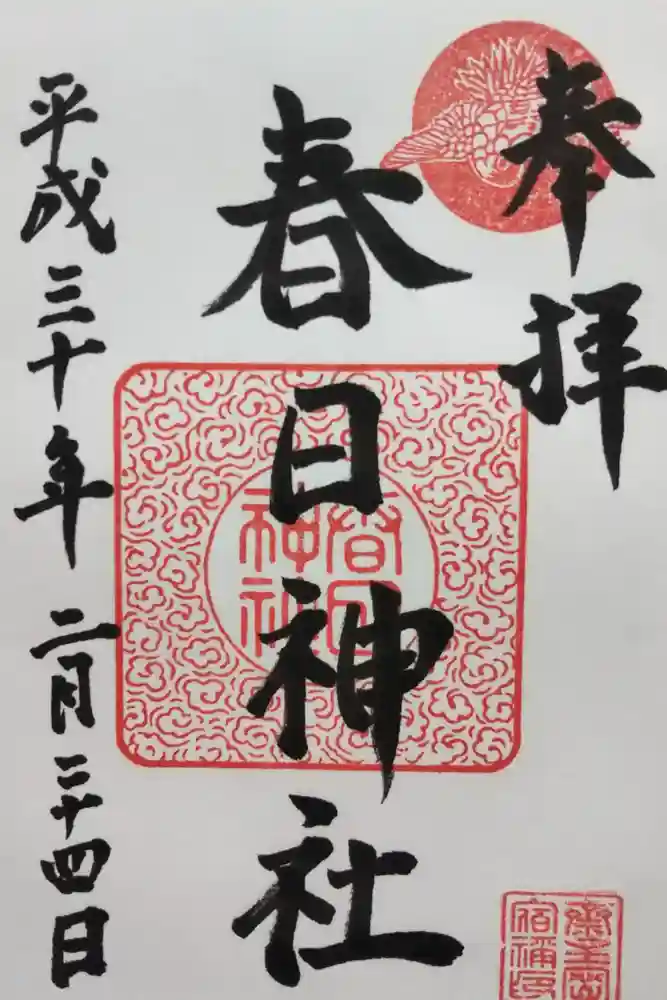 奉拝
春日神社
平成三十年 二月二十四日
春日
神社